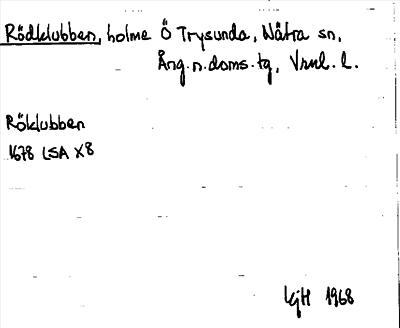 Rödklubben, holme Ö Trysunda, Nätra sn,
Ång.n.doms.tg, Vrnl. l.
Röklubben
1678 LSA X8
LgH 1968